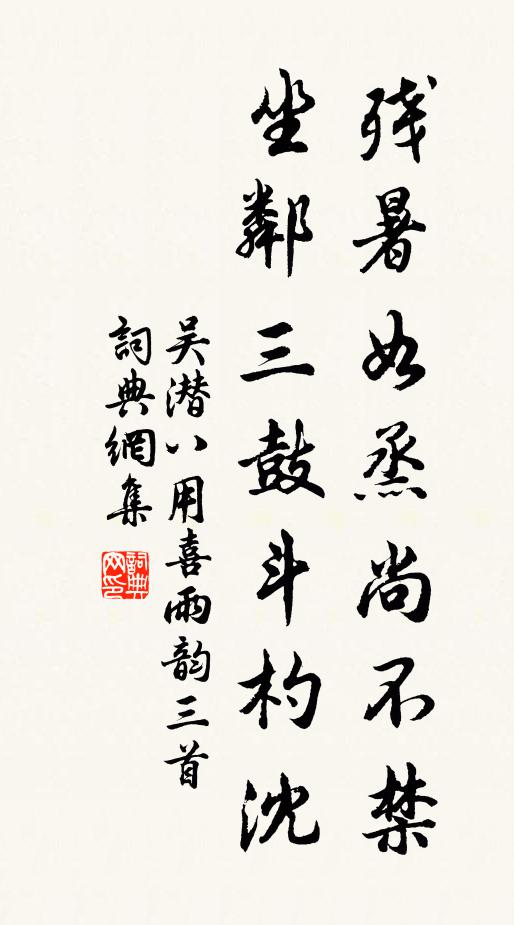 残暑如烝尚不禁
坐鄰三鼓斗杓沈
吴潜八用喜雨韵三首
詞典網集
詞典網印